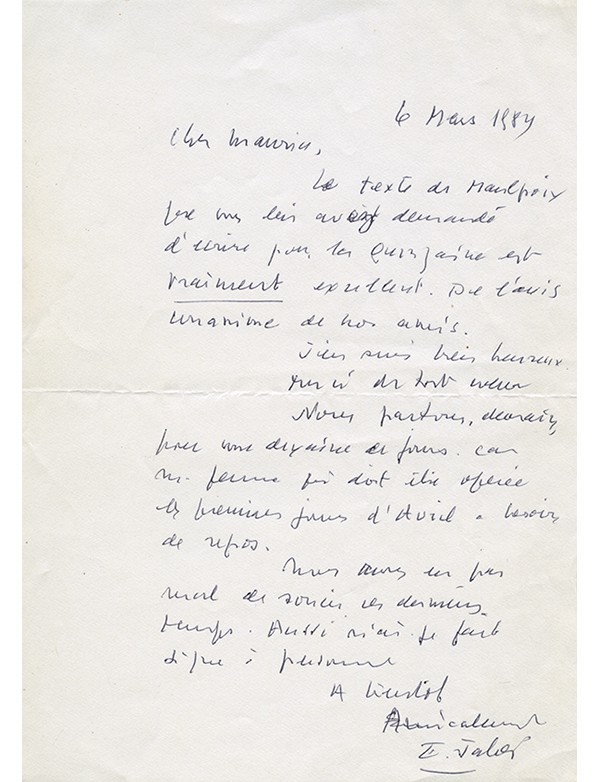 6 Mars 1984
Cher Maurice,
Le texte de Maulpoix
que vous lui aviez demandé
d'écrire pour la Quinzaine est
vraiment excellent. De l'avis
unanime de nos amis.
J'en suis très heureux.
Merci de tout coeur
Nous partons, demain,
pour une dizaine de jours. Car
m. femme qui doit être opérée
les premiers jours d'Avril a besoin
de repos.
Nous avons eu pas
mal de soucis ces derniers
temps. Aussi n'ai-je fait
signe à personne
A bientôt
Amicalement
E. Jabès